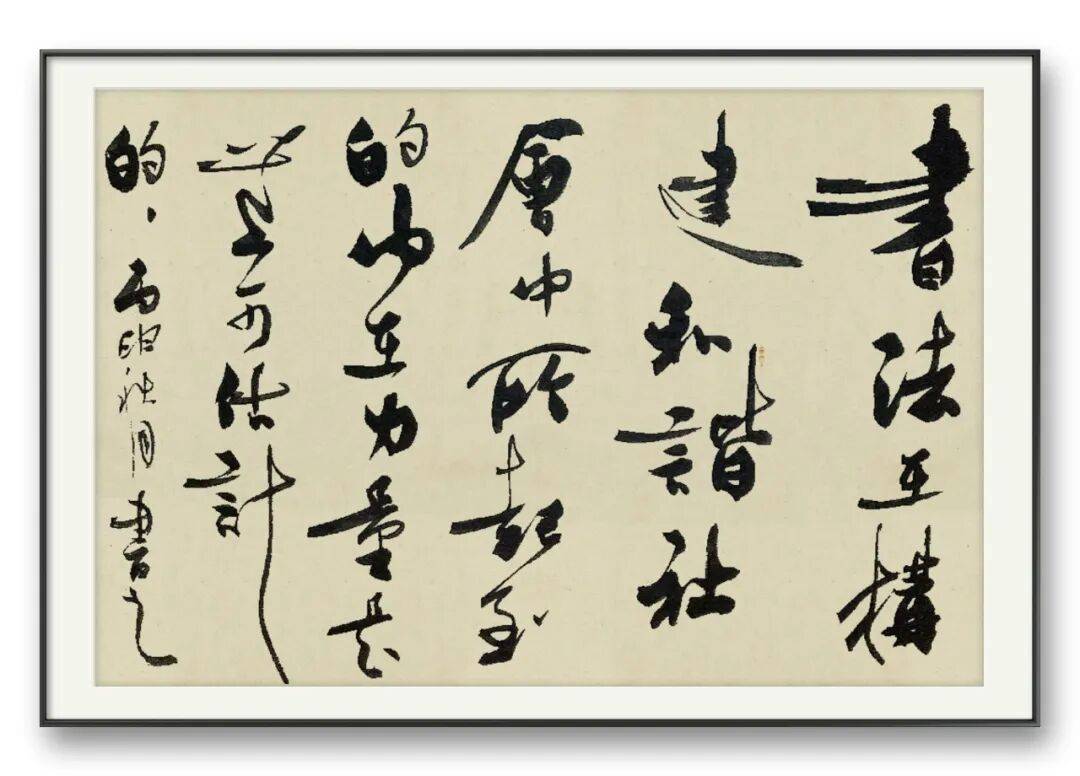 書法在構
建和諧社
會中所起到
的内在力量是
無可估計
的、丙申秋月書之